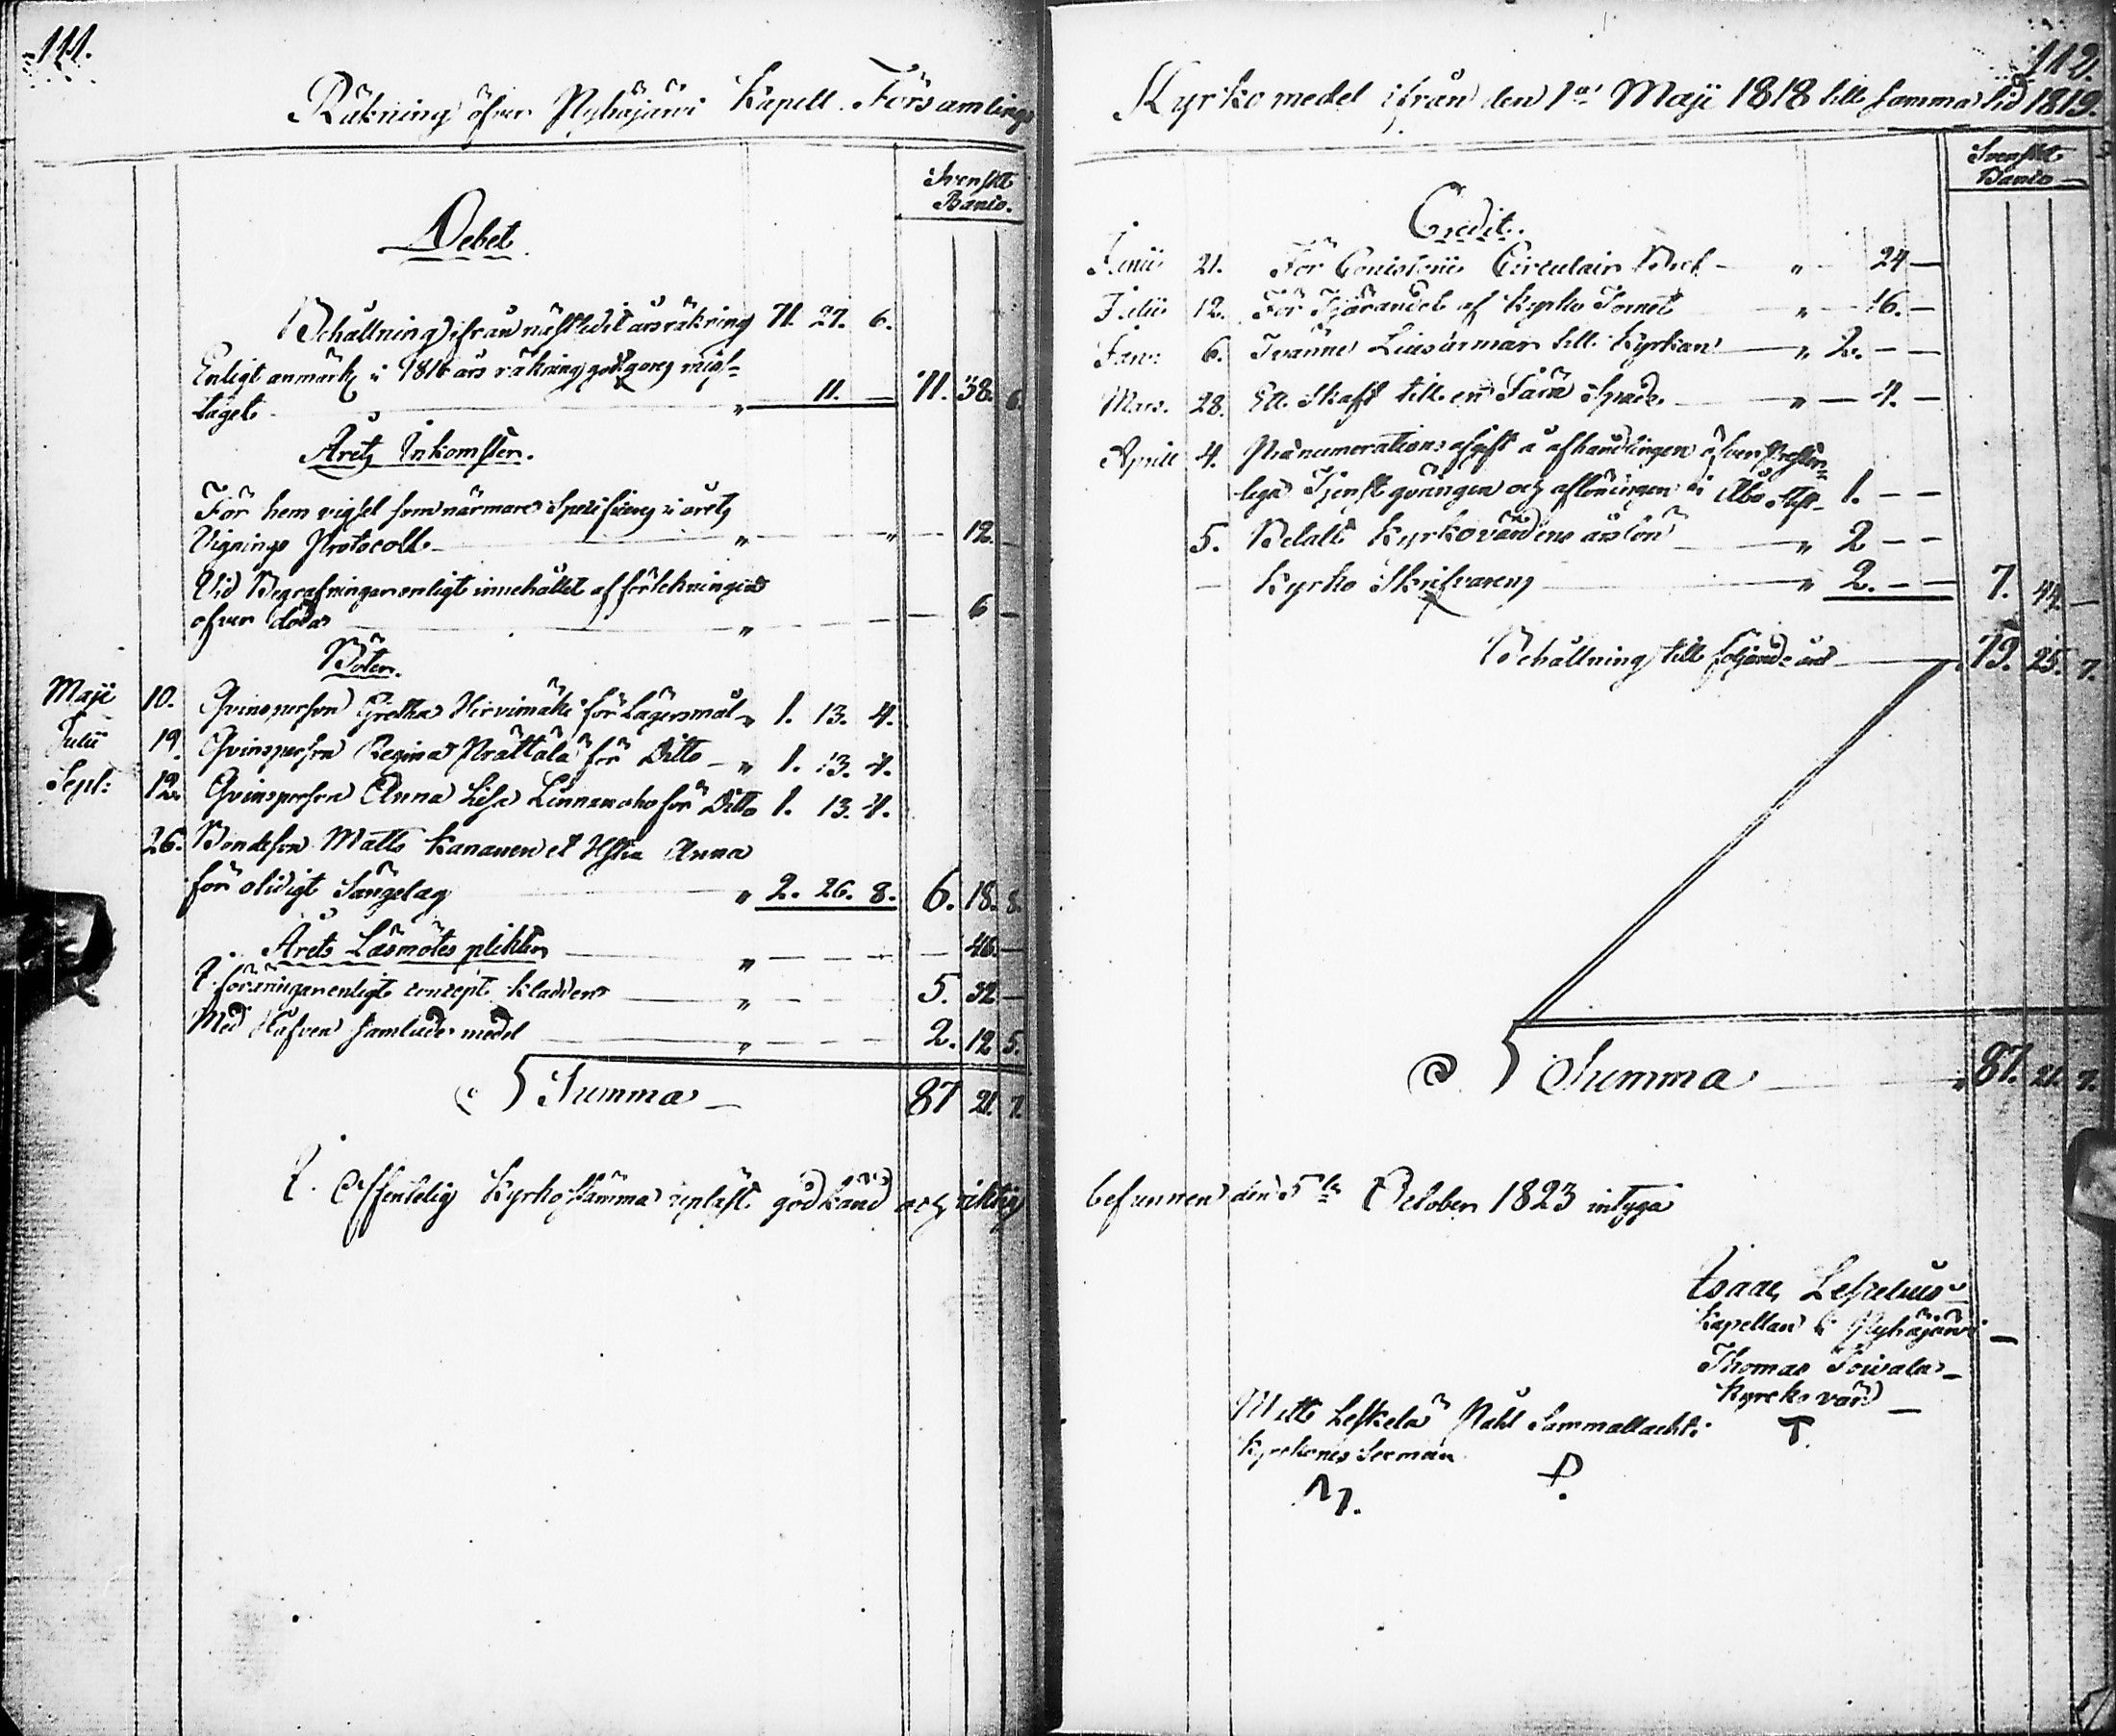 111.
Räkning öfver Pyhäjärvi Kapell Församlings
Svenskt
Banco.
Debet.
Behållning ifrån näst ledit års räkning 71. 27. 6.
Enligt anmärk i 1816 års räkning godtgöres miss-
taget " 11. — 71. 38. 6.
Årets Inkomster.
För hem vigsel som närmare Specificeras i årets
Vignings Protocoll " — " — 12. —
Vid Begrafningar enligt innehållet af förtekningen
öfver döda " — — 6 —
Böter.
Maji 10. Qvinsperson Gretha Hirvimäki för Lägersmål " 1. 13. 4.
Julii 19. Qvinsperson Regina Prättälä för Ditto " 1. 13. 4.
Sept: 12. Qvinsperson Anna Lisa Linnanoho för Ditto 1. 13. 4.
26. Bondeson Matts Kananen et Hstru Anna
för olidigt Sängelag " 2. 26. 8. 6. 18. 8.
Årets Läsmötes plikter " — — — — 46. —
Föräringar enligt concept kladden " — — — 5. 32. —
Med Håfven samlade medel " — — — 2. 12. 5.
Summa — 87 21. 7.
I Offentelig Kyrkostämma upläst godkänd och riktig
112.
Kyrko medel ifrån den 1sta Maji 1818 till samma tid 1819.
Svenskt
Banco
Credit.
Junii 21. För Consistorii Circulair Bref — " — 24 —
Julii 12. För Tjärandet af Kyrko Tornet " — 16. —
Janv: 6. Tvänne Liusarmar till Kyrkan — " 2. — —
Mars. 28. Ett Skaft till en Järn Spade — " — 4. —
Aprill 4. Pränumerations afgift å afhandlingen öfver Prester-
liga Tjenstgöringen och aflöningen i Åbo Stift 1. — —
5. Betalt Kyrkovärdens årslön — " 2 — —
— Kyrko Skrifvarens — " 2. — — 7. 44. —
Behållning till följande år — 79. 25. 7.
Summa — " 87. 21. 7.
befunnen den 5te October 1823 intyga
Isaac
Kapellan i Pyhäjärvi —
Thomas Toivala —
Kyrko värd —
T.
Matts Leskelä Pahl Sammallachti
Kyrkones Sexmän
M. P.